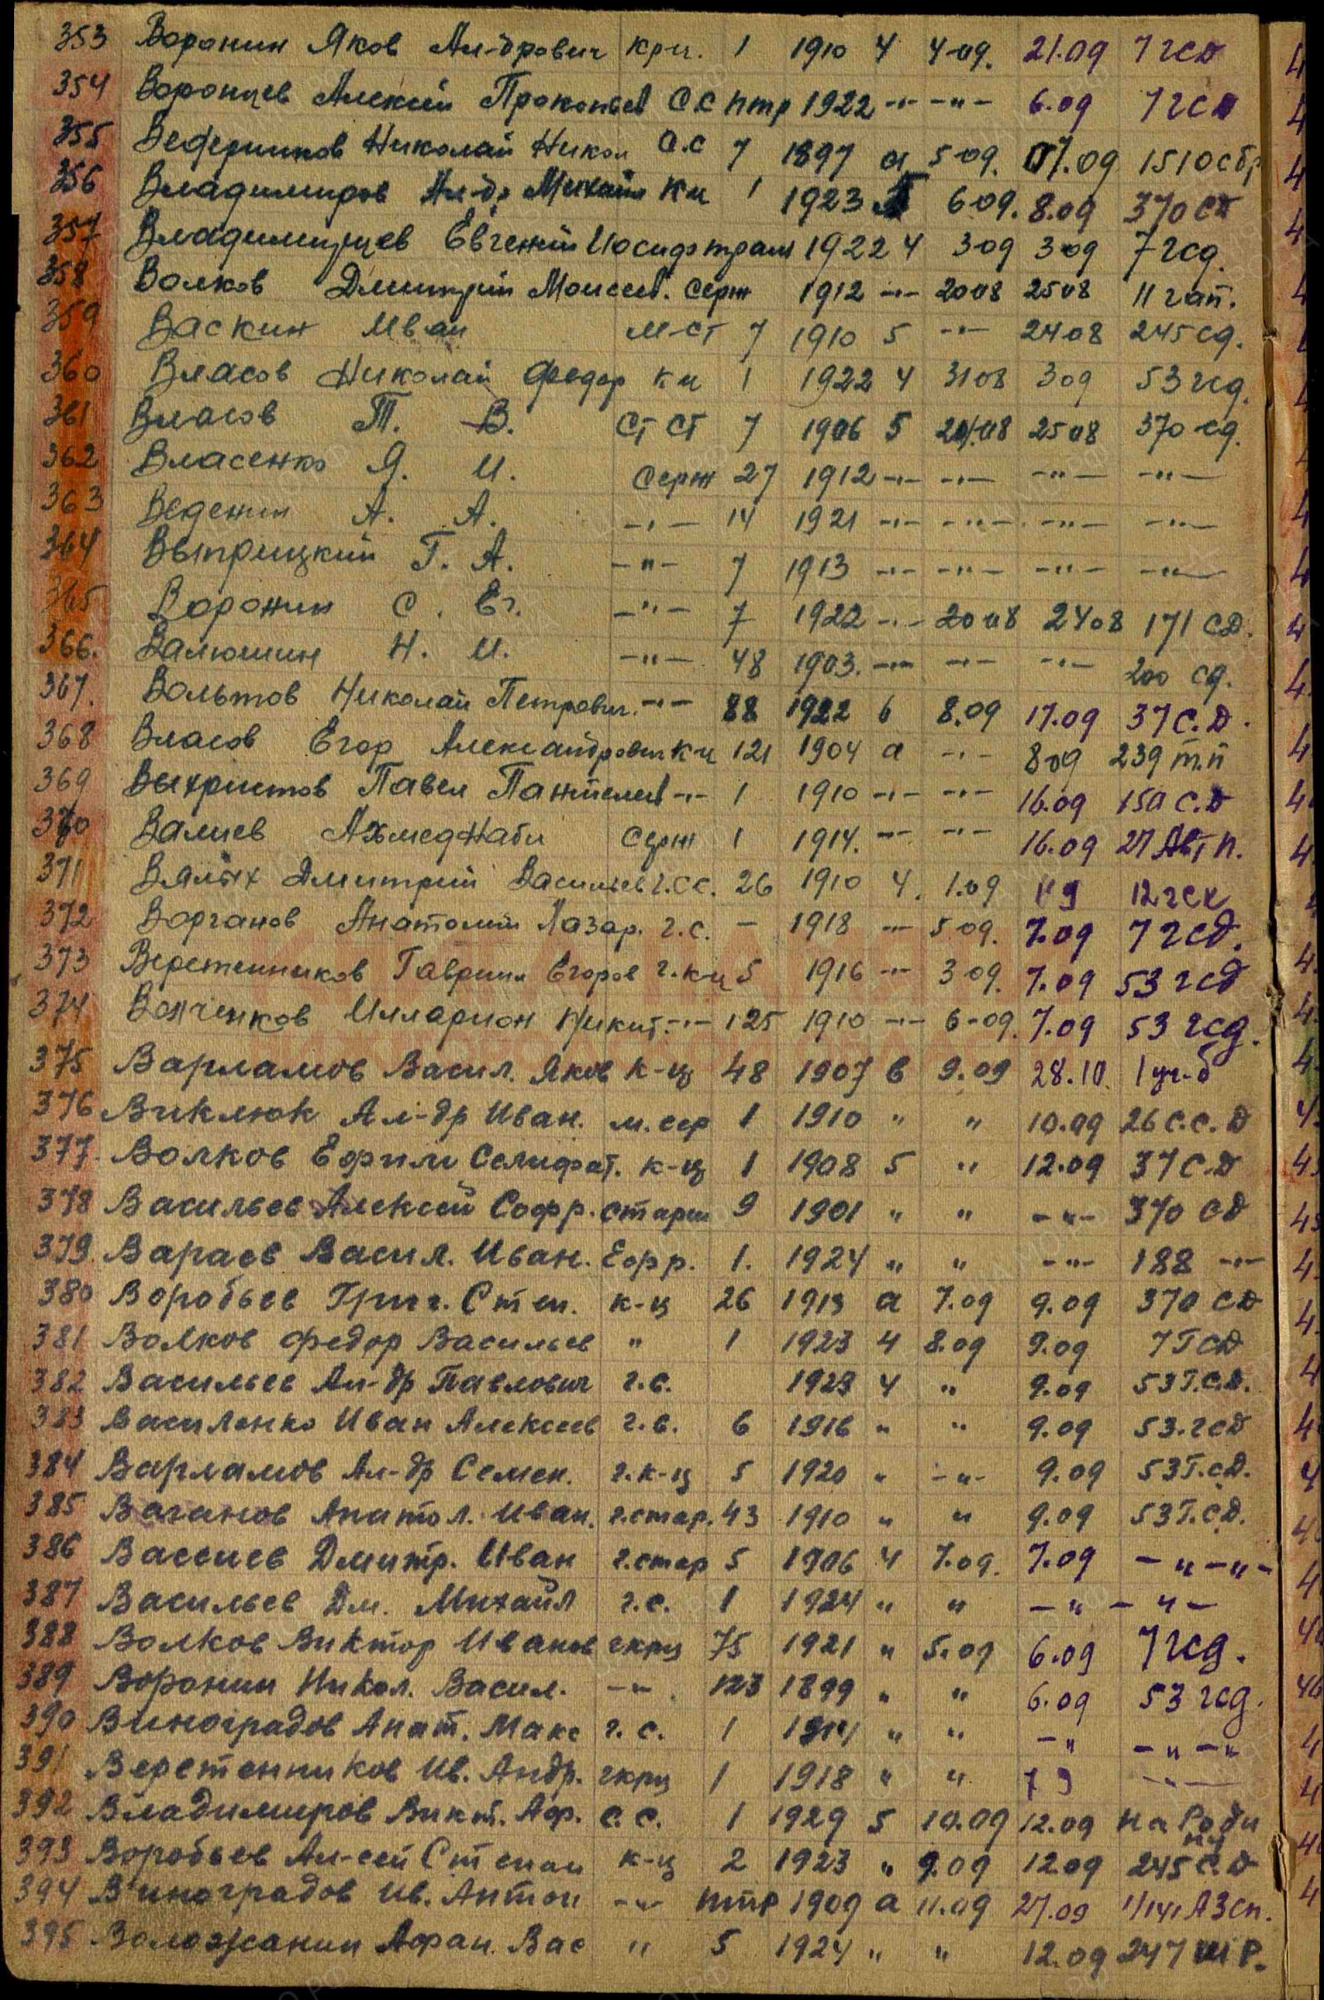 353 Воронин Яков Ал-дрович крц. 1 1910 4 4-09. 21.09 7 гсд
354 Воронцев Алексей Прокопьев С.С птр 1922 -"- -"- 6.09 7 гсд
355 Николай Никол С.С 7 1897 а 5-09. 17.09 151 Осбр
356 Владимиров Ал-др Михаил Кц 1 1923 6-09. 8.09 370 сд
357 Владимирцев Евгений Иосиф 1922 4 309 309 7 гсд.
358 Волков Дмитрий Моисеев. Серж 1912 -"- 2008 2508 11 гап.
359 Васкин Иван М-СТ 7 1910 5 -"- 2408 245 сд.
360 Власов Николай Федор Кц 1 1922 4 3108 309 53 гсд.
361 Власов Т. В. СТ СТ 7 1906 5 2508 370 сд.
362 Власенко Я. И. Серж 27 1912 -"- -"- -"- -"-
363 Веденин А. А. -"- 14 1921 -"- -"- -"- -"-
364 Выприцкий Г. А. -"- 7 1913 -"- -"- -"- -"-
365 Воронин С. Ег. -"- 7 1922 -"- 2008 2408 171 СД.
366. Валюшин Н. И. -"- 48 1903. -"- -"- -"- 200 сд.
367. Вольтов Николай Петрович. -"- 88 1922 6 8.09 17.09 37 С.Д.
368 Власов Егор Александрович Кц 121 1904 а -"- 809 239 т.п
369 Выхристов Павел Пантелеев -"- 1 1910 -"- -"- 16.09 150 С.Д
370 Валиев Ахмеднаби Серж 1 1914. -"- -"- 16.09 27 Авт п.
371 Вялых Дмитрий Васильев г.СС. 26 1910 4. 1.09 1 9 12 гск
372 Ворганов Анатолий Лазар. г.с. - 1918 -"- 5 09. 7.09 7 гсд.
373 Веретенников Гавриил Егоров г.кц 5 1916 -"- 3 09. 7.09 53 гсд
374 Волченков Илларион Никит. -"- 125 1910 -"- 6-09. 7.09 53 гсд.
375 Варламов Васил. Яков к-ц 48 1907 в 9.09 28.10. 1 уч-б
376 Виклюк Ал-др Иван. м.сер 1 1910 " " 10.09 26 С.С.Д
377. Волков Ефим Селифат. к-ц 1 1908 5 " 12.09 37 С.Д
378 Васильев Алексей Софр. старш 9 1901 " " -"- 370 СД
379. Вараев Васил. Иван. Ефр. 1. 1924 " " -"- 188 -"-
380 Воробьев Григ. Степ. к-ц 26 1913 а 7.09 9.09 370 СД
381 Волков Федор Васильев " 1 1923 4 8.09 9.09 7 ГСД
382 Васильев Ал-др Павлович г.с. 1923 4 " 9.09 53 Г.С.Д.
383 Василенко Иван Алексеев г.с. 6 1916 " " 9.09 53. гсд
384 Варламов Ал-др Семен. г.к-ц 5 1920 " -"- 9.09 53 Г.СД.
385 Ваганов Анатол. Иван. г.стар. 43 1910 " " 9.09 53 Г.СД.
386 Вассиев Дмитр. Иван г.стар 5 1906 4 7.09. 7.09 -"-"-
387 Васильев Дм. Михайл г.с. 1 1924 " " -"- -"-
388 Волков Виктор Иванов гкрц 75 1921 " 5.09 6.09 7 гсд.
389 Воронин Никол. Васил. -"- 123 1899 " " 6.09 53 гсд.
390 Виноградов Анат. Макс г.с. 1 " " -" -"-"
391 Веретенников Ив. Андр. гкрц 1 1918 " " 7 9 -"-
392 Владимиров Викт. Аф. с.с. 1 1929 5 10.09 12.09 на Родину
393 Воробьев Ал-сей Степан к-ц 2 1923 " 9.09 12.09 245 С.Д
394 Виноградов Ив. Антон -"- птр 1909 а 11.09 27.09 1/141 АЗСП.
395 Воложанин Афан. Вас " 5 1924 " " 12.09 247 ш Р.